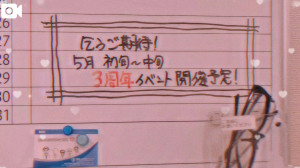 26
27
28
29
30
31
乞うご期待!
5月 初旬~中旬
3周年イベント開催予定!